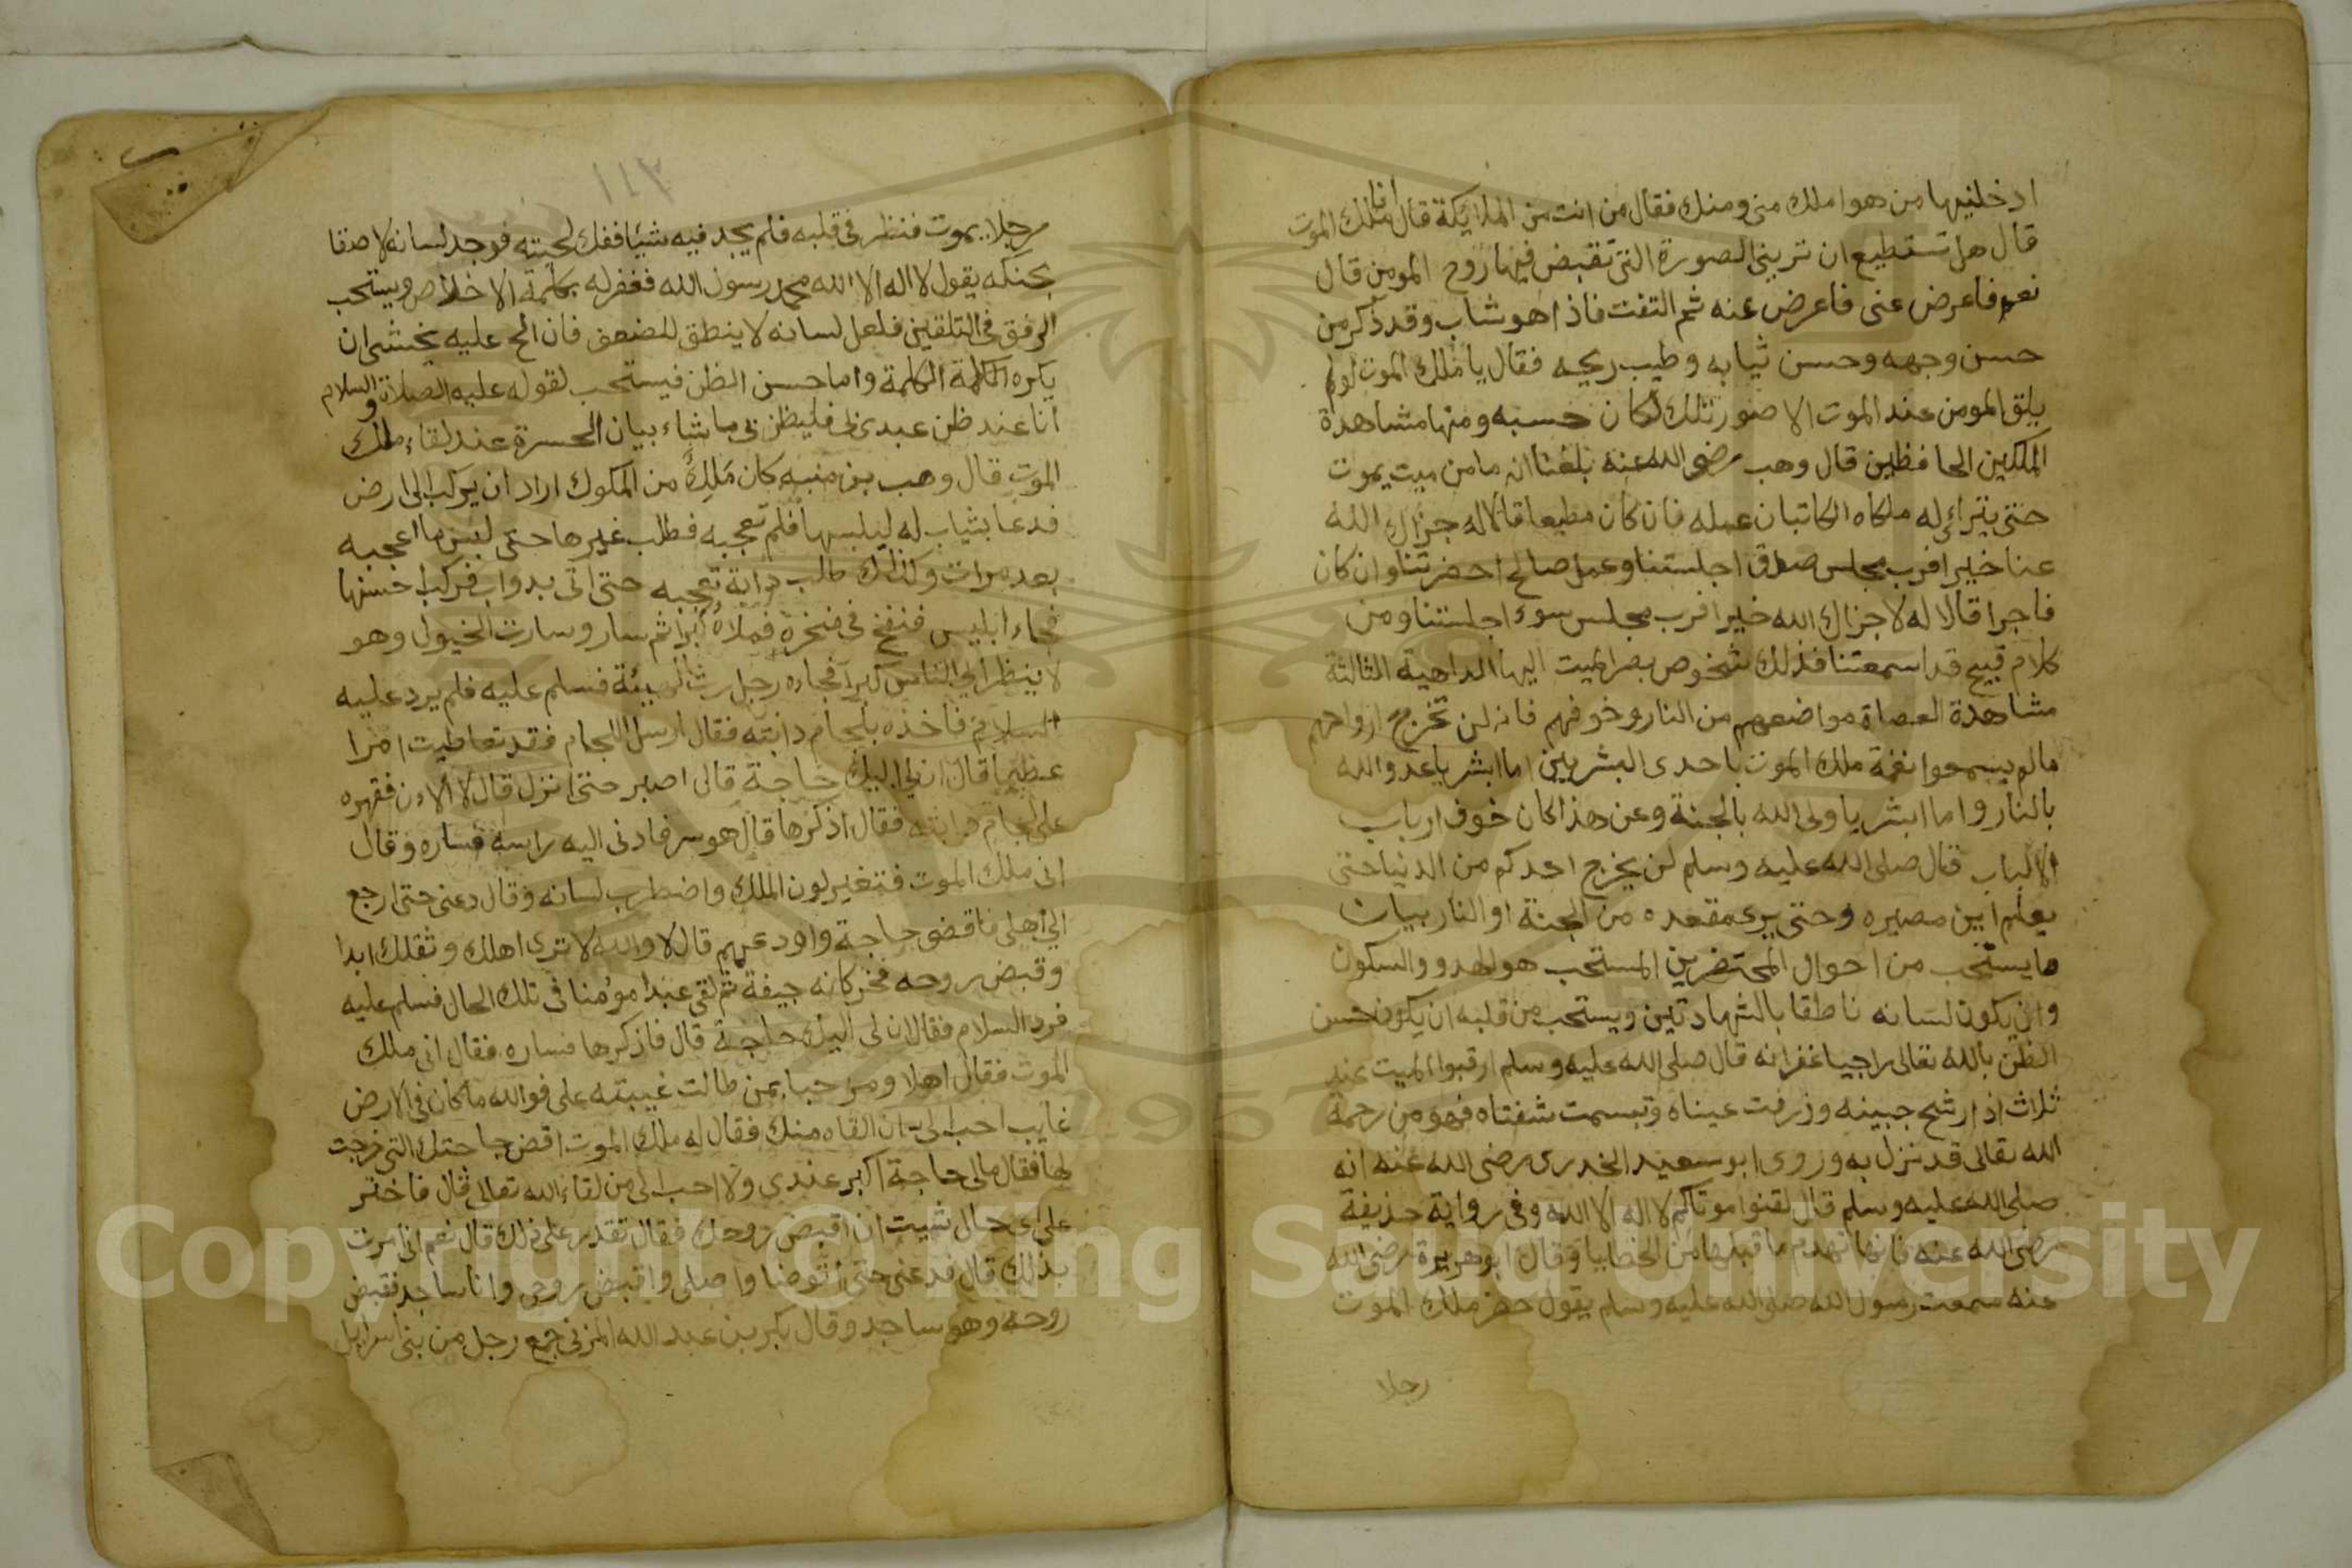 ادخلنيها من هو املك منى ومنك فقال من انت من الملايكة قال انا ملك الموت
قال هل تستطيع ان ترينى الصورة التى تقبض فيها روح المومن قال
نعم فاعرض عنى فاعرض عنه ثم التفت فاذا هو شاب وقد ذكر من
حسن وجهه وحسن ثيابه وطيب ريحه فقال يا ملك الموت لو لم
يلق المومن عند الموت الا صورتك لكان حسبه ومنها مشاهدة
الملكين الحافظين قال وهب رضى الله عنه بلغنا انه ما من ميت يموت
حتى يتراءى له ملكاه الكاتبان عمله فان كان مطيعا قالا له جزاك الله
عنا خيرا فرب مجلس صدق اجلستنا وعمل صالح احضرتنا وان كان
فاجرا قالا له لا جزاك الله خيرا فرب مجلس سوء اجلستنا ومن
كلام قبيح قد اسمعتنا فذلك شخوص بصر الميت اليها الداهية الثالثة
مشاهدة العصاة مواضعهم من النار وخوفهم فانه لن تخرج ارواحهم
مالم يسمعوا نغمة ملك الموت باحدى البشريين اما ابشر يا عدو الله
بالنار واما ابشر يا ولى الله بالجنة وعن هذا كان خوف ارباب
الالباب قال صلى الله عليه وسلم لن يخرج احدكم من الدنيا حتى
يعلم اين مصيره وحتى يرى مقعده من الجنة او النار بيان
ما يستحب من احوال المحتضرين المستحب هو الهدو والسكون
وان يكون لسانه ناطقا بالشهادتين ويستحب من قلبه ان يكون حسن
الظن بالله تعالى راجيا غفرانه قال صلى الله عليه وسلم ارقبوا الميت عند
ثلاث اذا رشح جبينه وزرفت عيناه وتبسمت شفتاه فهو من رحمة
الله تعالى قد نزل به وروى ابو سعيد الخدرى رضى الله عنه انه
صلى الله عليه وسلم قال لقنوا موتاكم لا اله الا الله وفى رواية حذيفة
رضى الله عنه فانها تهدم ما قبلها من الخطايا وقال ابو هريرة رضى الله
عنه سمعت رسول الله صلى الله عليه وسلم يقول حضر ملك الموت
رجلا
١١٣
رجلا يموت فنظر فى قلبه فلم يجد فيه شيئا ففك لحيته فوجد لسانه لاصقا
بحنكه يقول لا اله الا الله محمد رسول الله فغفر له بكلمة الاخلاص ويستحب
الرفق فى التلقين فلعل لسانه لا ينطق للضعف فان الح عليه يخشى ان
يكره الكلمة واما حسن الظن فيستحب لقوله عليه الصلاة والسلام
انا عند ظن عبدى بى فليظن بى ما شاء بيان الحسرة عند لقاء ملك
الموت قال وهب بن منبه كان ملك من الملوك اراد ان يركب الى ارض
فدعا بثياب له ليلبسها فلم تعجبه فطلب غيرها حتى لبس ما اعجبه
بعد مرات وكذلك طلب دابة تعجبه حتى اتى بدواب فركب احسنها
فجاء ابليس فنفخ فى منخره فملاه كبرا ثم سار وسارت الخيول وهو
لا ينظر الى الناس كبرا فجاءه رجل رث الهيئة فسلم عليه فلم يرد عليه
السلام فاخذه بلجام دابته فقال ارسل اللجام فقد تعاطيت امرا
عظيما قال ان لى اليك حاجة قال اصبر حتى انزل قال لا الان فقهره
على لجام دابته فقال اذكرها قال هو سر فادنى اليه راسه فساره وقال
انى ملك الموت فتغير لون الملك واضطرب لسانه وقال دعنى حتى ارجع
الى اهلى فاقضى حاجة واودعهم قال لا والله لا ترى اهلك وثقلك ابدا
وقبض روحه فخر كانه جيفة ثم لقى عبدا مؤمنا فى تلك الحال فسلم عليه
فرد السلام فقال ان لى اليك حاجة قال فاذكرها فساره فقال انى ملك
الموت فقال اهلا ومرحبا بمن طالت غيبته على فوالله ما كان فى الارض
غايب احب الى ان القاه منك فقال له ملك الموت اقض حاجتك التى خرجت
لها فقال مالى حاجة اكبر عندى ولا احب الى من لقاء الله تعالى قال فاختر
على اى حال شيت ان اقبض روحك فقال تقدر على ذلك قال نعم انى امرت
بذلك قال فدعنى حتى اتوضا واصلى واقبض روحى وانا ساجد فقبض
روحه وهو ساجد وقال بكر بن عبد الله المزنى جمع رجل من بنى اسرايل
Copyright © King Saud University
1957